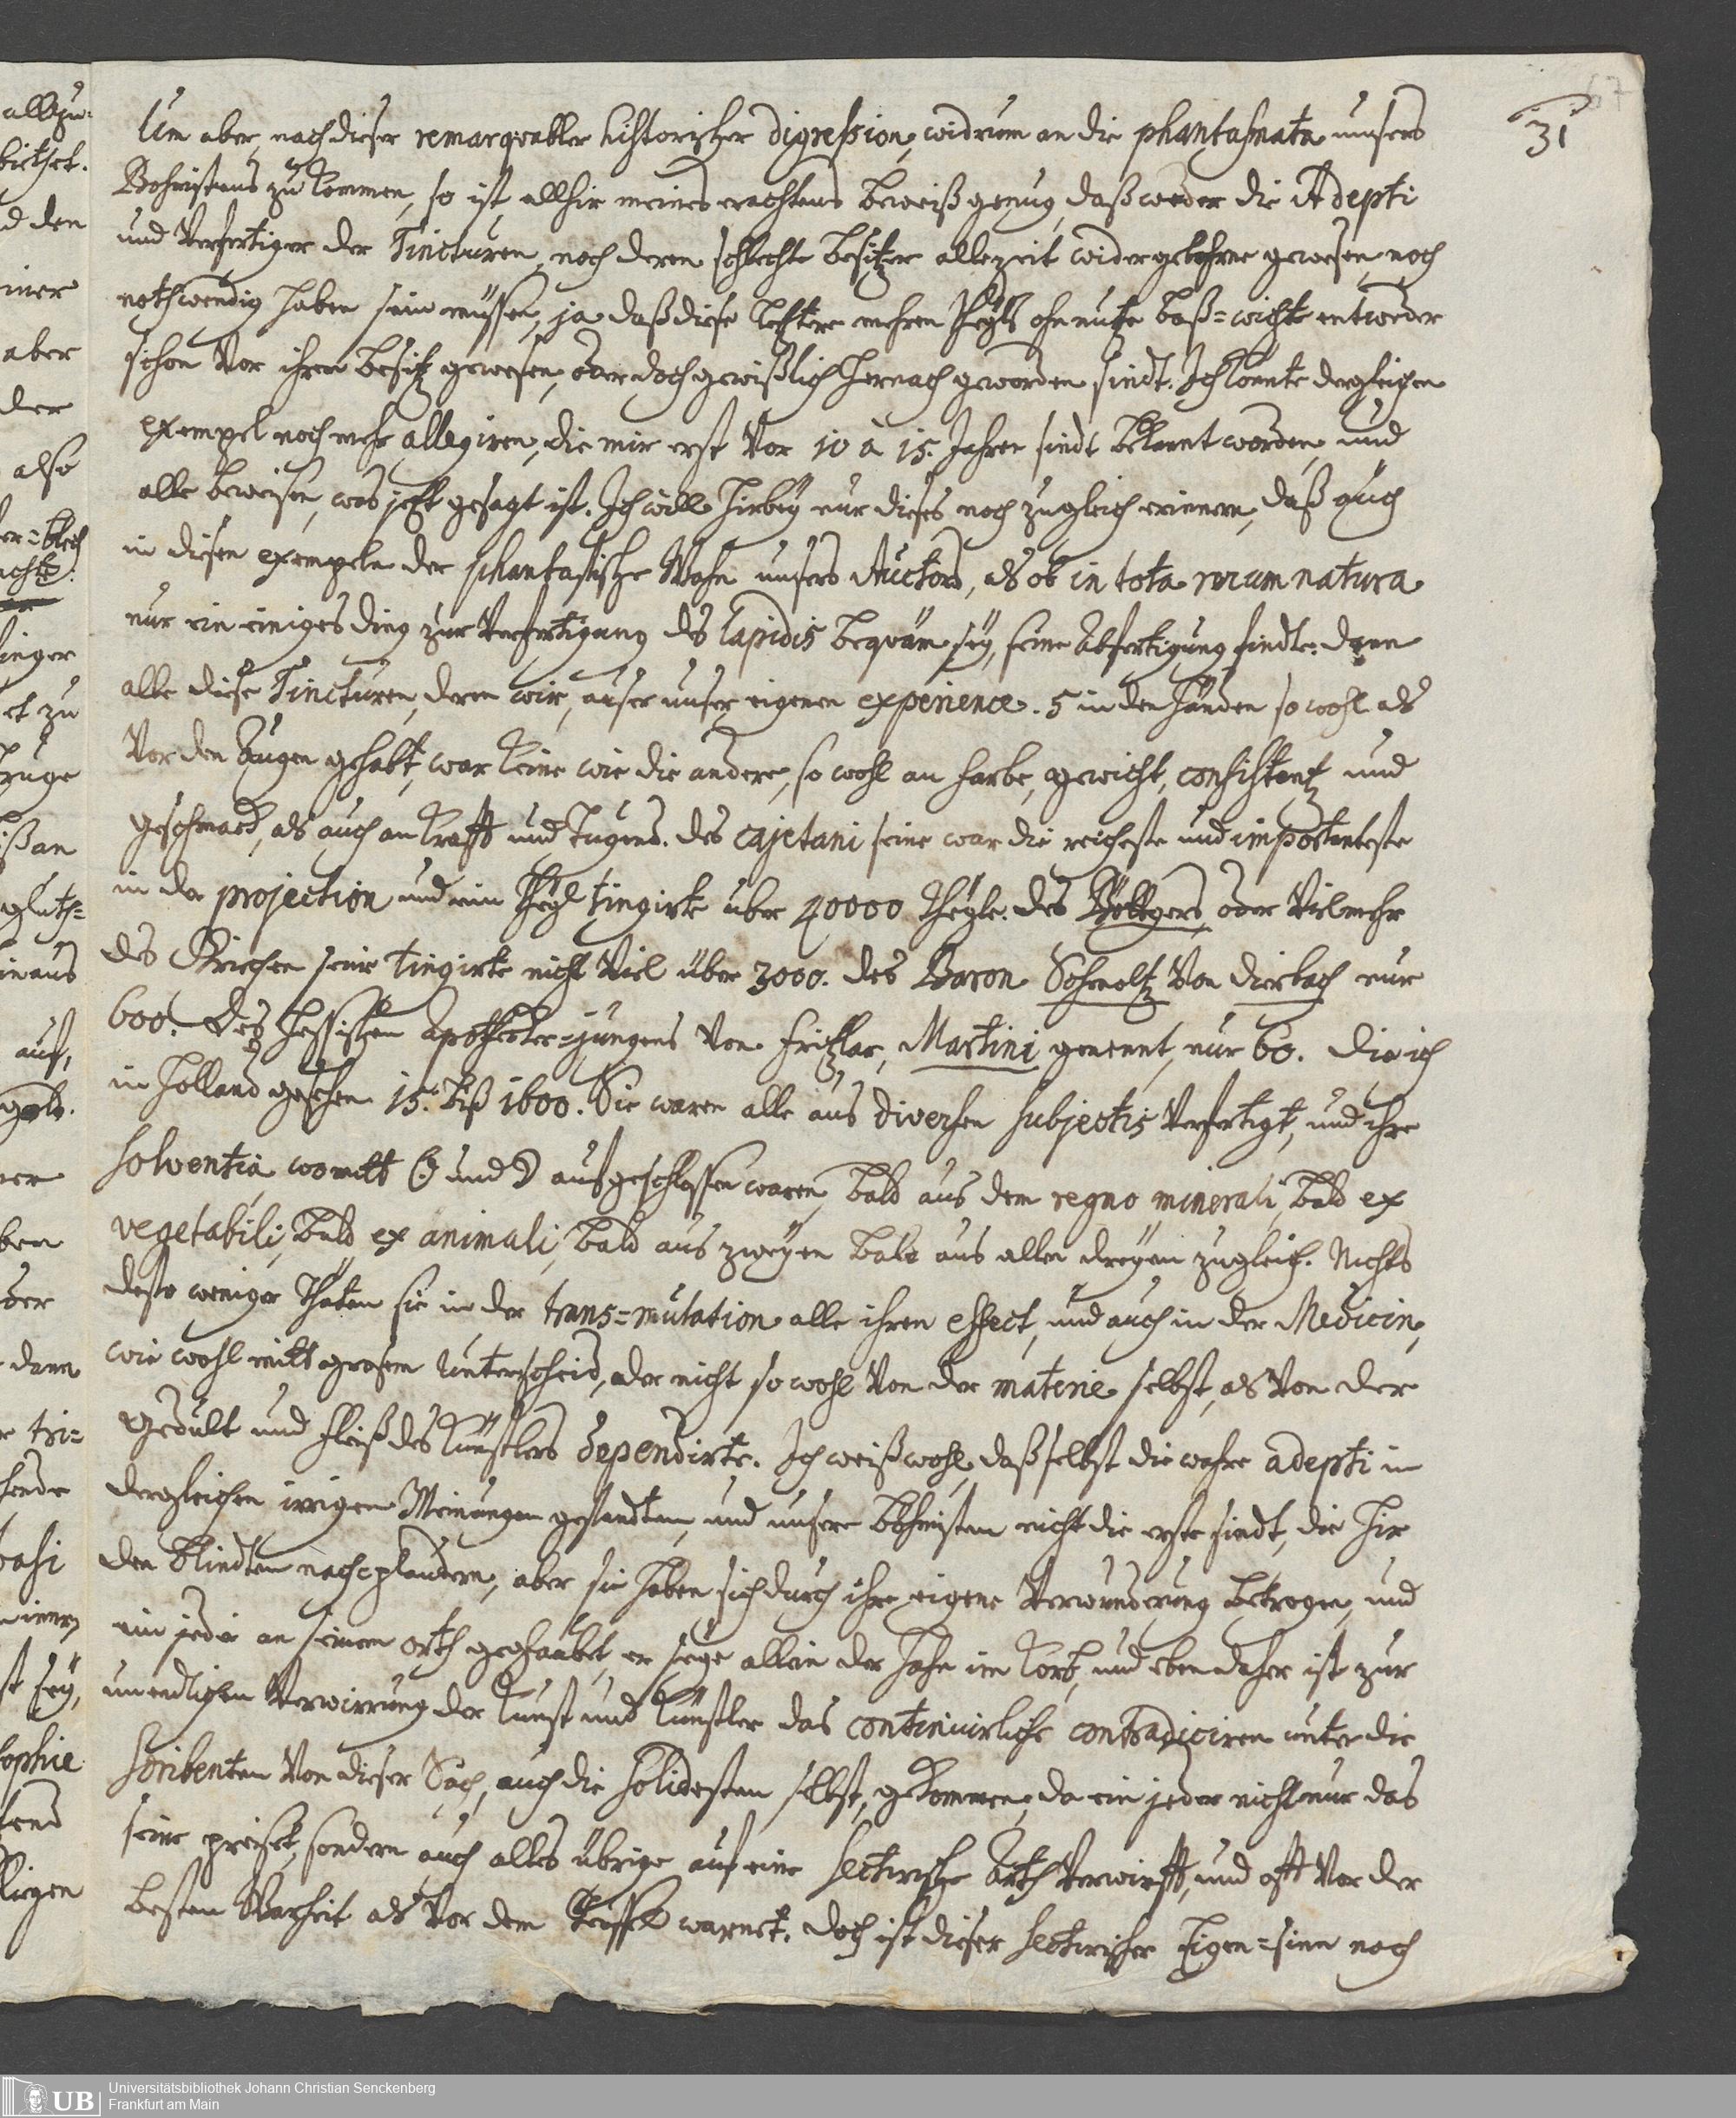 31
Um aber, nach dieser remarqvabler historischer digression, widrum an die phantasmata unsers
Bohmistens zu kommen, so ist allhir meines erachtens beweiß genug, daß weder die Adepti
und Verfertiger der Tincturen, noch deren schlechte besitzer allezeit widergebohrne gewesen, noch
nothwendig haben sein müssen, ja daß diese letztere mehren theyls ohnnutze boß=wichte entweder
schon vor ihren besitz gewesen, oder doch gewißlich hernach geworden sindt. Ich konte dergleichen
exempel noch mehr allegiren, die mir erst vor 10 à 15. Jahren sindt bekannt worden, und
alle beweisen, was jetzt gesagt ist. Ich will hirbey nur dieses noch zugleich erinnern, daß auch
in diesen exempeln der phantastische Wahn unsers Auctors, als ob in tota rerum natura
nur ein einiges ding zur Verfertigung des lapidis beqväm sey, seine abfertigung findte. dann
alle diese Tincturen, deren wir, auser unser eigenen experience. 5 in den händen so wohl als
vor den augen gehabt, war keine wie die andere, so wohl an farbe, gewicht, consistentz und
geschmack, als auch an krafft und tugend. des cajetani seine war die reicheste und importanteste
in der projection und ein theyl tingirte über 40000 theyle. des Böttgers, oder vielmehr
des Griechen seine tingirte nicht viel über 3000. des Baron Schmoltz von dierbach nur
600. des hessischen apothecker=jungens von fritzlar, Martini genennt, nur 60. die ich
in holland gesehen 15. biß 1600. Sie waren alle aus diversen subjectis verfertigt, und ihre
solventia womitt ☉ und ☽ aufgeschlossen waren, bald aus dem regno minerali, bald ex
vegetabili, bald ex animali, bald aus zweyen bald aus allen dreyen zugleich. Nichts
desto weniger thäten sie in der trans=mutation alle ihren effect, und auch in der Medicin,
wie wohl mitt grosem unterscheid, der nicht so wohl von der materie selbst, als von der
gedult und fleiß des künstlers dependirte. Ich weiß wohl, daß selbst die wahre adepti in
dergleichen irrigen Meinungen gestandten, und unsere Böhmisten nicht die erste sindt, die hir
den blindten nachplaudern, aber sie haben sich durch ihre eigene Verwunderung betrogen, und
ein jeder an seinem orth geglaubet, er seye allein der hahn im korb, und eben daher ist zur
unendlichen Verwirrung der kunst und künstler das continuirliche contradiciren unter die
scribenten von dieser Sach, auch die solidesten selbst, gekommen, da ein jeder nicht nur das
seine preiset, sondern auch alles übrige auf eine sectirische arth verwirfft, und offt vor der
besten Warheit als vor dem teuffel warnet. doch ist dieser sectirischer Eigen=sinn noch
UB
Universitätsbibliothek Johann Christian Senckenberg
Frankfurt am Main